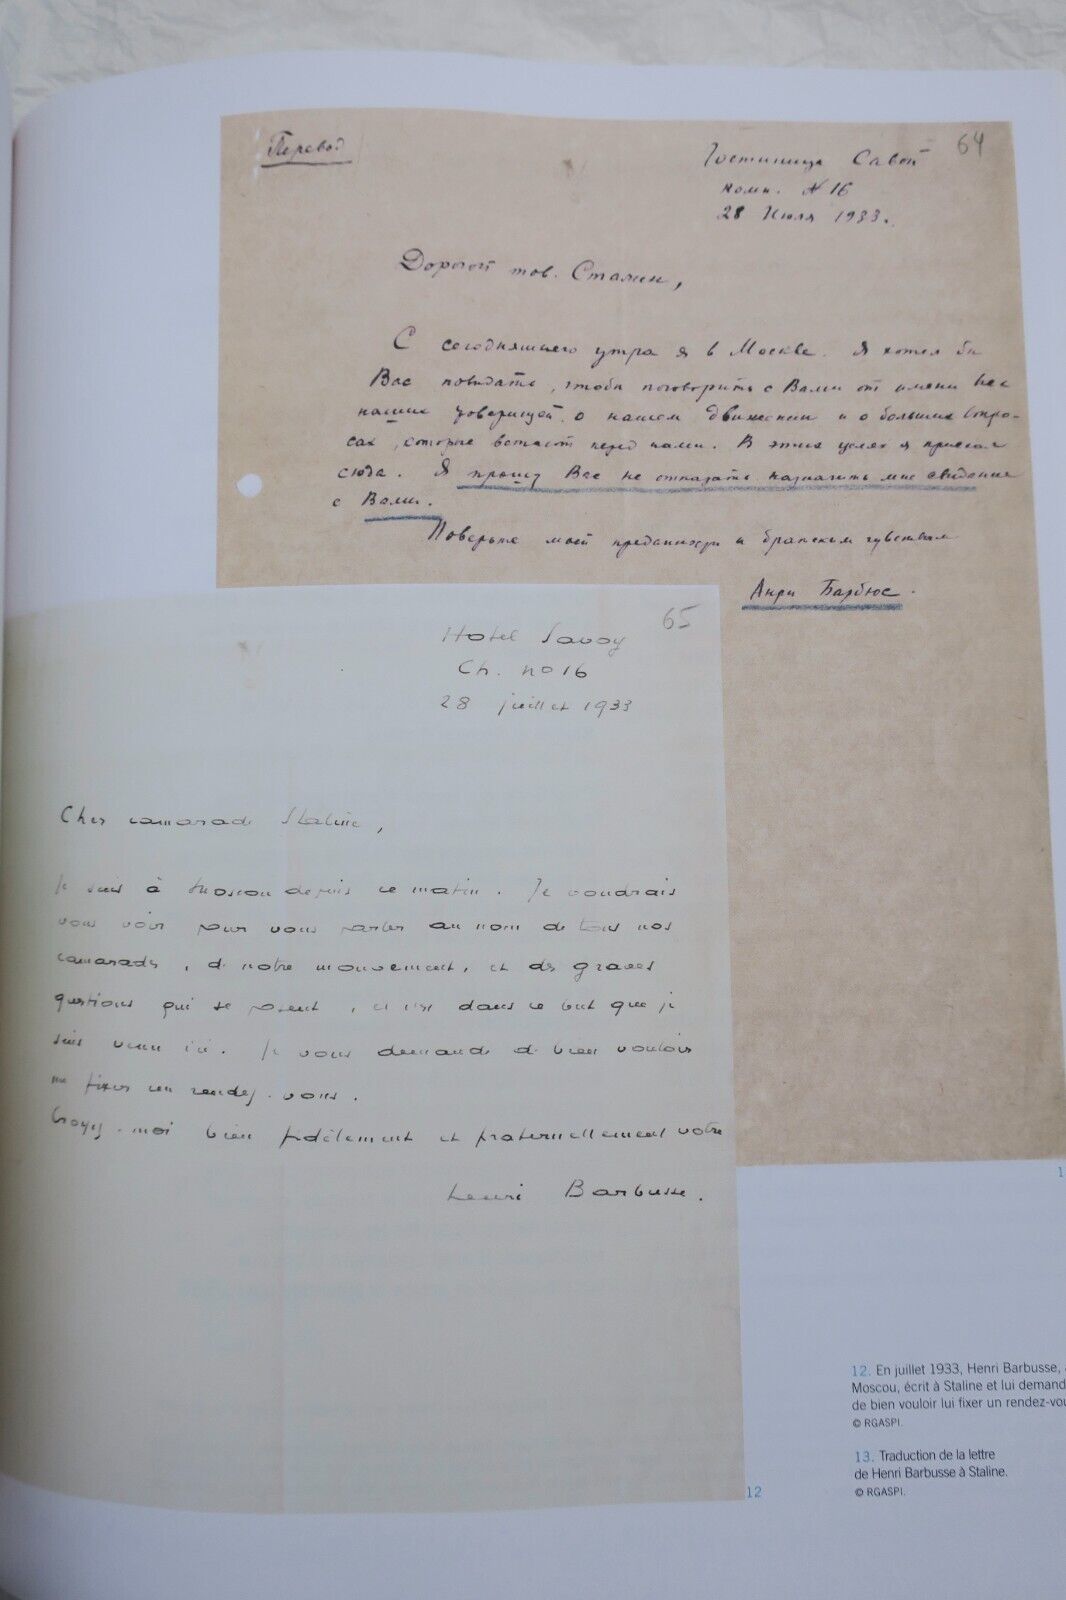 Перевод
64
Гостиница Савой
комн. № 16
28 Июля 1933.
Дорогой тов. Сталин,
С сегодняшнего утра я в Москве. Я хотел бы
Вас повидать, чтобы поговорить с Вами от имени всех
наших товарищей о нашем движении и о больших вопро-
сах, которые встают перед нами. В этих целях я приехал
сюда. Я прошу Вас не отказать назначить мне свидание
с Вами.
Поверьте моей преданности и братским чувствам
Анри Барбюс.
65
Hotel Savoy
Ch. no 16
28 juillet 1933
Cher camarade Staline,
Je suis à Moscou depuis ce matin. Je voudrais
vous voir pour vous parler au nom de tous nos
camarades, de notre mouvement, et des graves
questions qui se posent, et c'est dans ce but que je
suis venu ici. Je vous demande de bien vouloir
me fixer un rendez-vous.
Croyez-moi bien fidèlement et fraternellement votre
Henri Barbusse.
1
12
12. En juillet 1933, Henri Barbusse,
Moscou, écrit à Staline et lui demand
de bien vouloir lui fixer un rendez-vou
© RGASPI.
13. Traduction de la lettre
de Henri Barbusse à Staline.
© RGASPI.